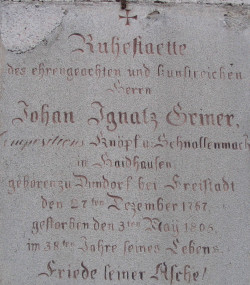 Ruhestaette
des ehrengeachten und kunstreichen
Herrn
Johan Ignatz Griner,
Knöpf u Schnallenmach
in Haidhausen.
geboren zu bei Freistadt
den 27ten Dezember 1767.
gestorben den 3ten May 1805.
im 38ten Jahre seines Lebens.
Friede seiner Asche!